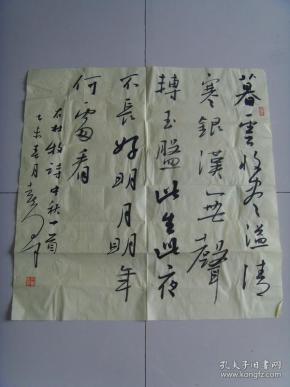 暮雲收盡溢清
寒銀漢無聲
轉玉盤此生此夜
不長好明月明年
何處看
杜牧詩中秋一首
乙未春月
孔夫子旧书网